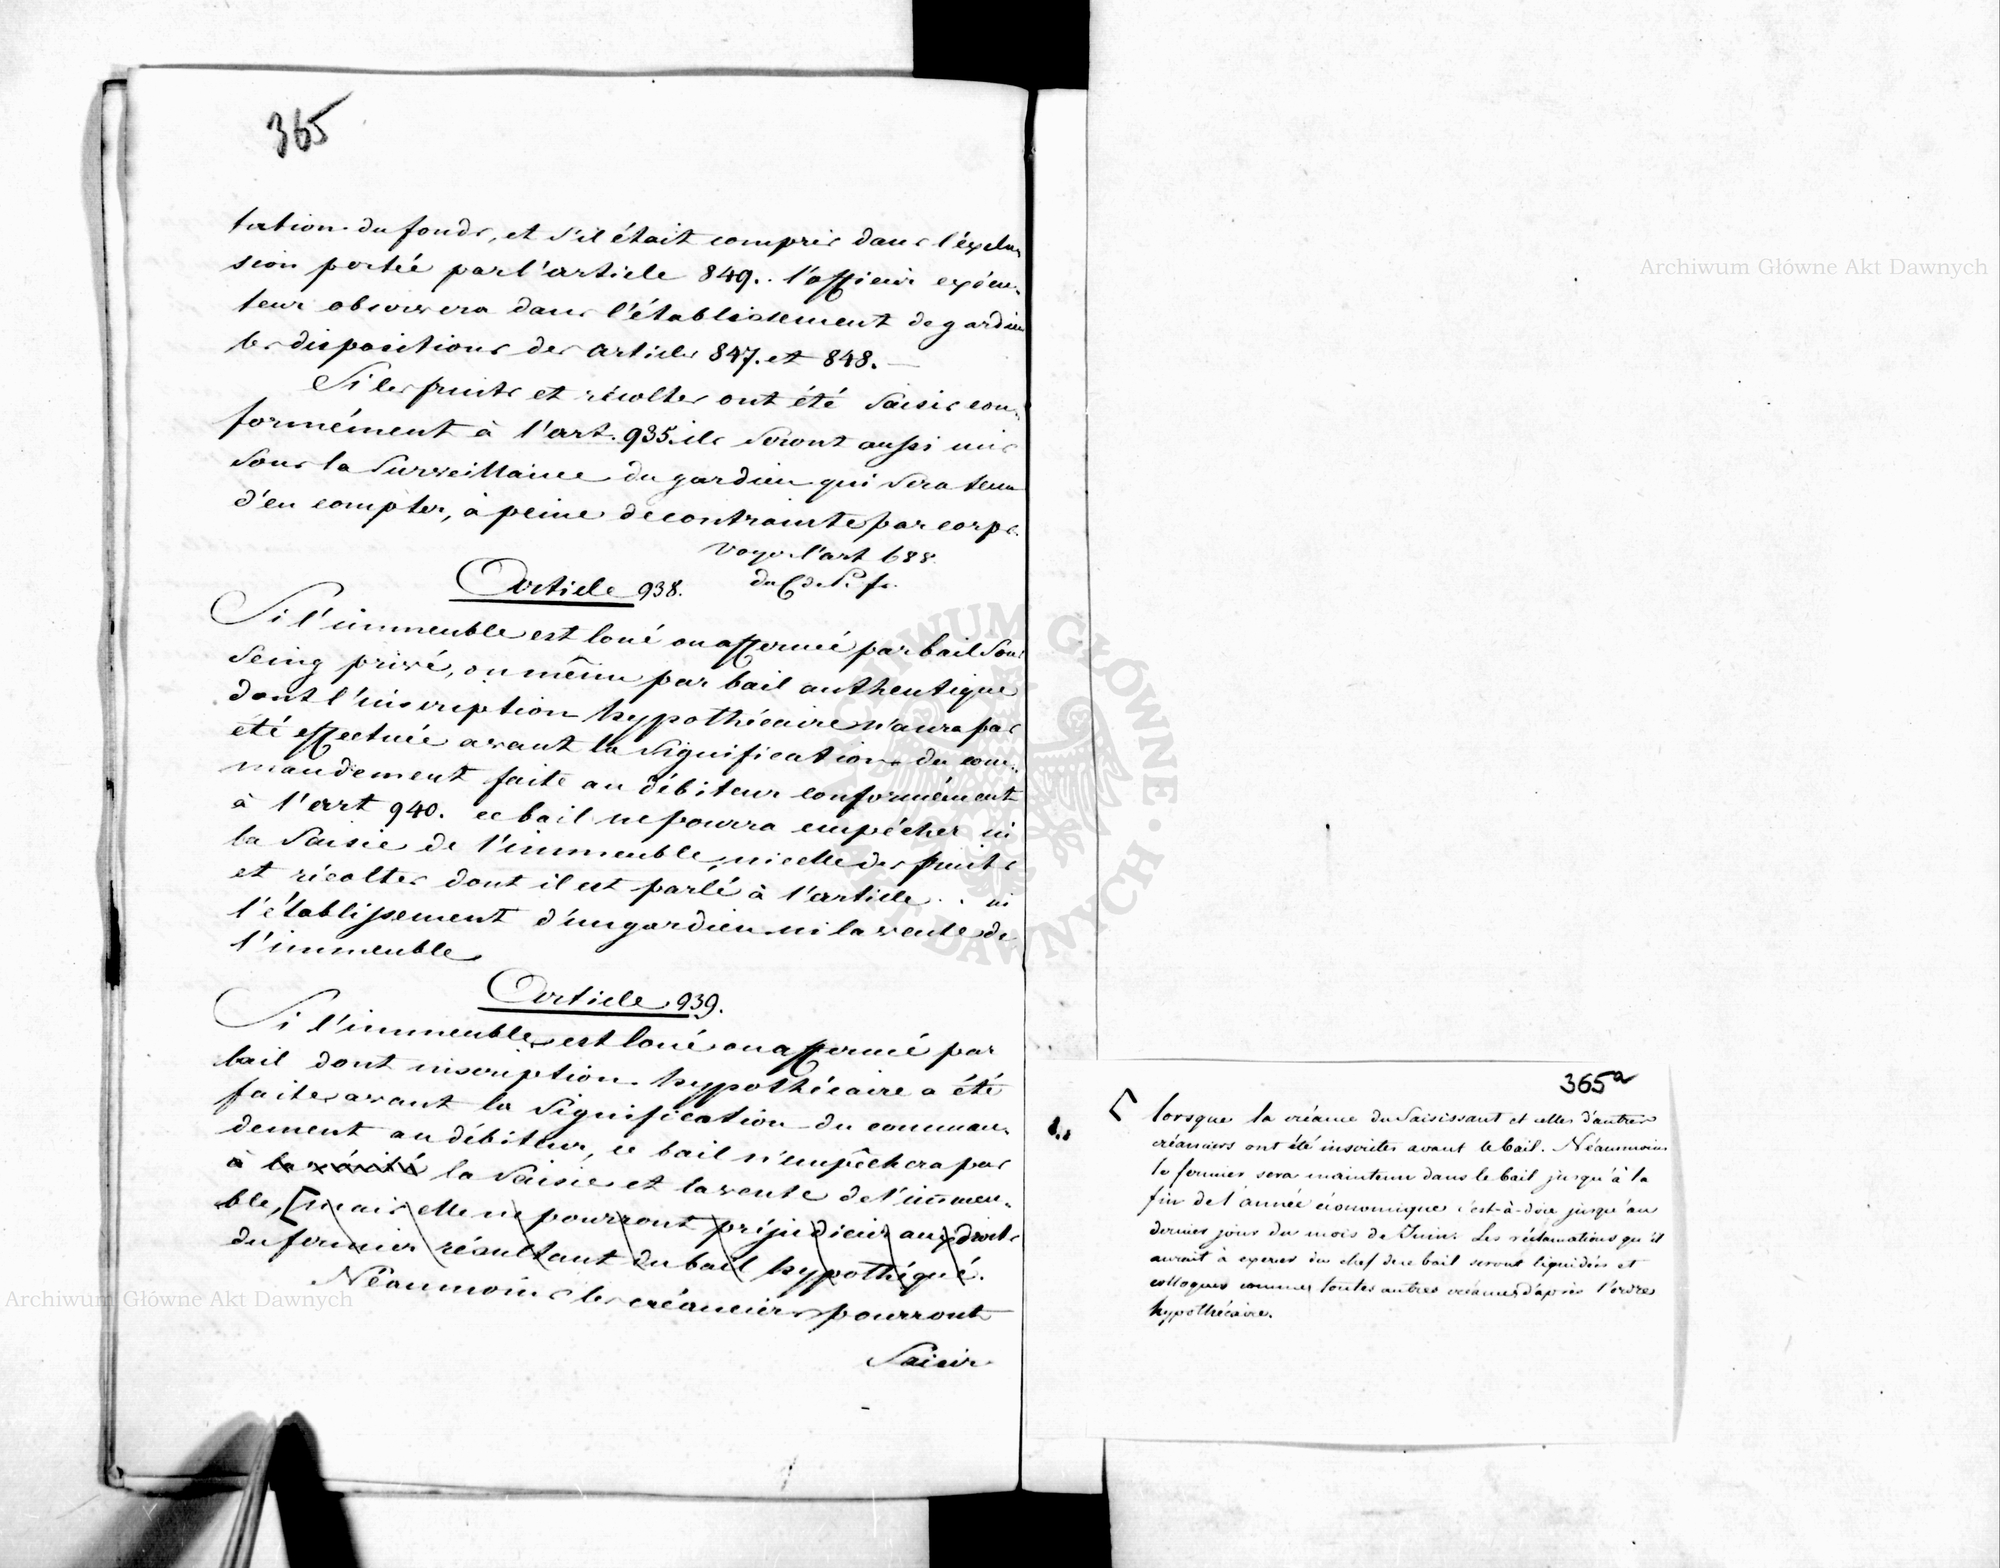 365
tation du fonds, et s'il était compris dans l'éxclu-
sion portée par l'article 849. l'officier exécu-
teur observera dans l'établissement de gardien
les dispositions des articles 847. et 848. —
Si les fruits et récoltes ont été saisis con-
formément à l'art. 935. ils seront aussi mis
sous la surveillance du gardien qui sera tenu
d'en compter, à peine de contrainte par corps.
Voyez l'art 688.
du C. de P. fr.
Article 938.
Si l'immeuble est loué ou affermé par bail sous
seing privé, ou même par bail authentique
dont l'inscription hypothécaire n'aura pas
été effectuée avant la signification du com-
mandement faite au débiteur conformément
à l'art 940. ce bail ne pourra empêcher ni
la saisie de l'immeuble, ni celle des fruits
et récoltes dont il est parlé à l'article . . ni
l'établissement d'un gardien ni la vente de
l'immeuble
Article 939.
Si l'immeuble est loué ou affermé par
bail dont inscription hypothécaire a été
faite avant la signification du comman-
dement au débiteur, ce bail n'empêchera pas
à la vérité la saisie et la vente de l'immeu-
ble, [mais elle ne pourront préjudicier aux droits
du fermier résultant du bail hypothéqué.
Néanmoins les créanciers pourront
Saisir
365a
lorsque la créance du saisissant et celles d'autres
créanciers ont été inscrites avant le bail. Néanmoins
le fermier sera maintenu dans le bail jusqu'à la
fin de l'année économique c'est-à-dire jusqu'au
dernier jour du mois de Juin. Les réclamations qu'il
aurait à exercer du chef de ce bail seront liquidées et
colloquées comme toutes autres créances d'après l'ordre
hypothécaire.
Archiwum Główne Akt Dawnych
Archiwum Główne Akt Dawnych
ARCHIWUM GŁÓWNE AKT DAWNYCH